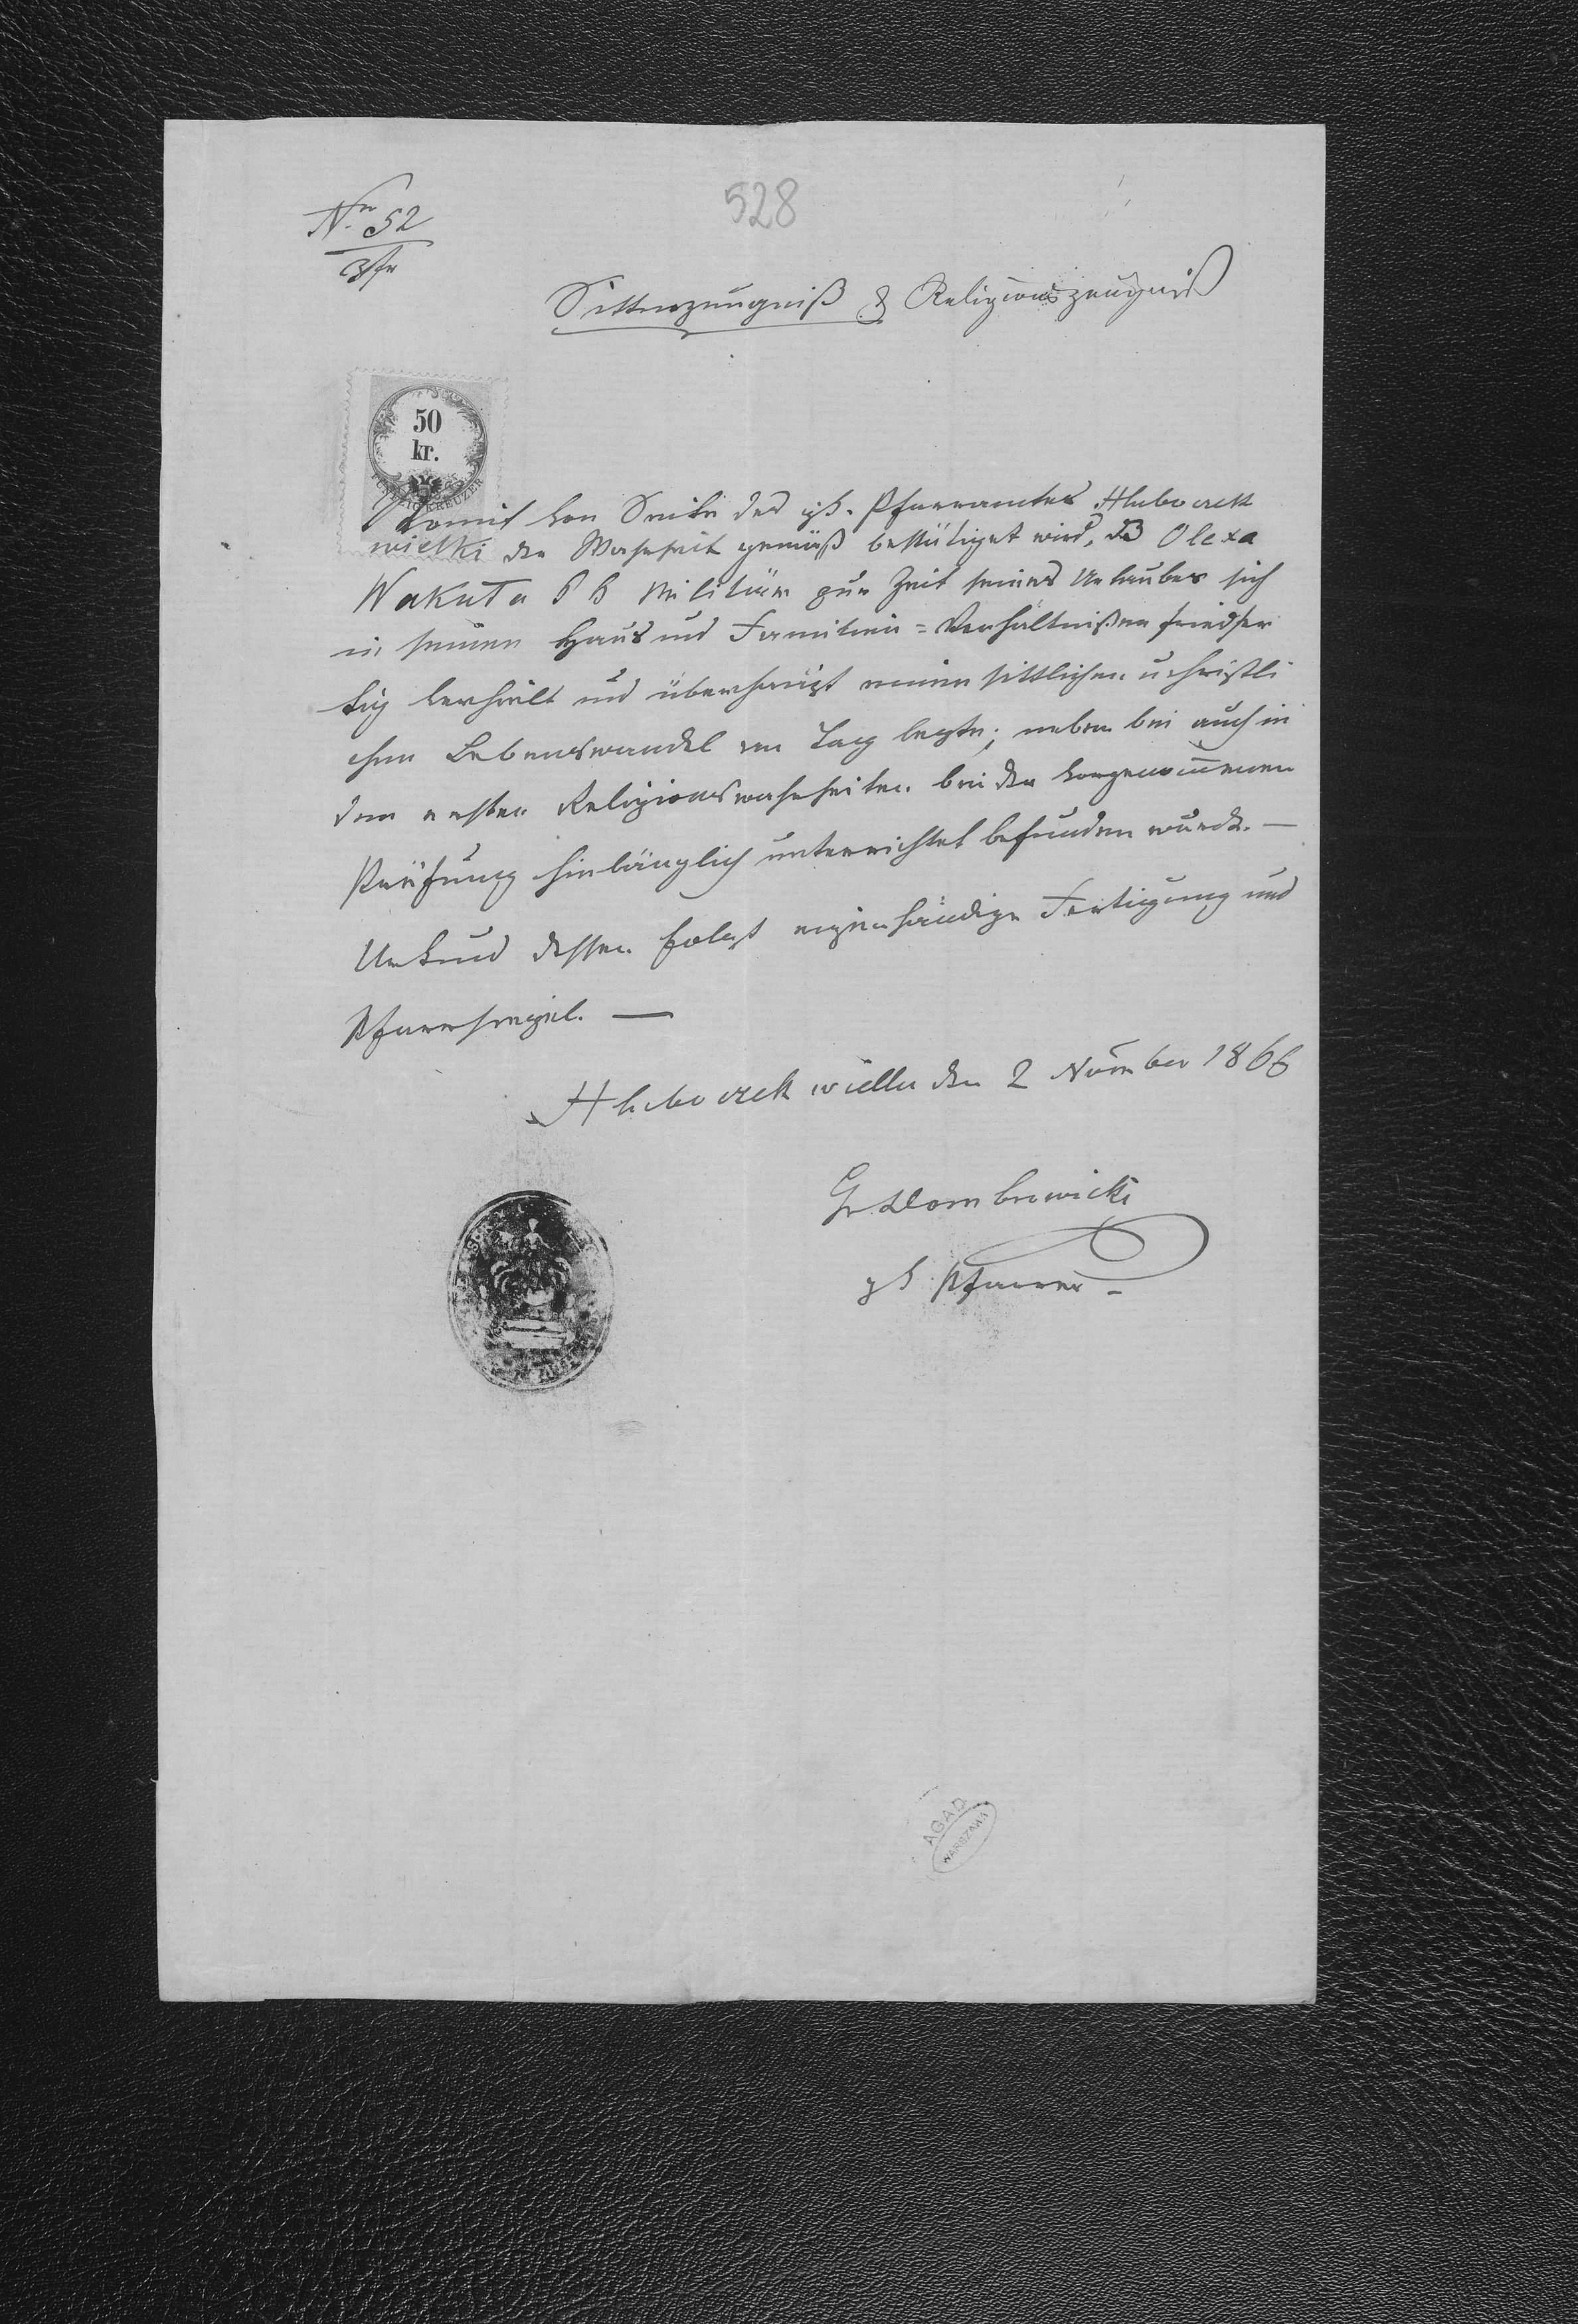 Nr. 52
528
Sittenzeugniß & Religionszeugniß
50
kr.
FÜNFZIG KREUZER
Womit von Seite des gk. Pfarramtes Hluboczek
wielki der Wahrheit gemäß bestätiget wird, dß Olexa
Wakuta Militär zur Zeit seines Urlaubes sich
in seinen Haus und Familien=Verhältnißen friedfer
tig verhielt und überhaupt einen sittlichen u christli
chen Lebenswandel am Tag legte; neben bei auch in
den ersten Religionswahrheiten bei der vorgenommenen
Prüfung hinlänglich unterrichtet befunden wurde. —
Urkund dessen folgt eigenhändige Fertigung und
Pfarrsiegel. —
Hluboczek wielki den 2 November 1866
Gr Dombrowicki
gk Pfarrer
AGAD
WARSZAWA